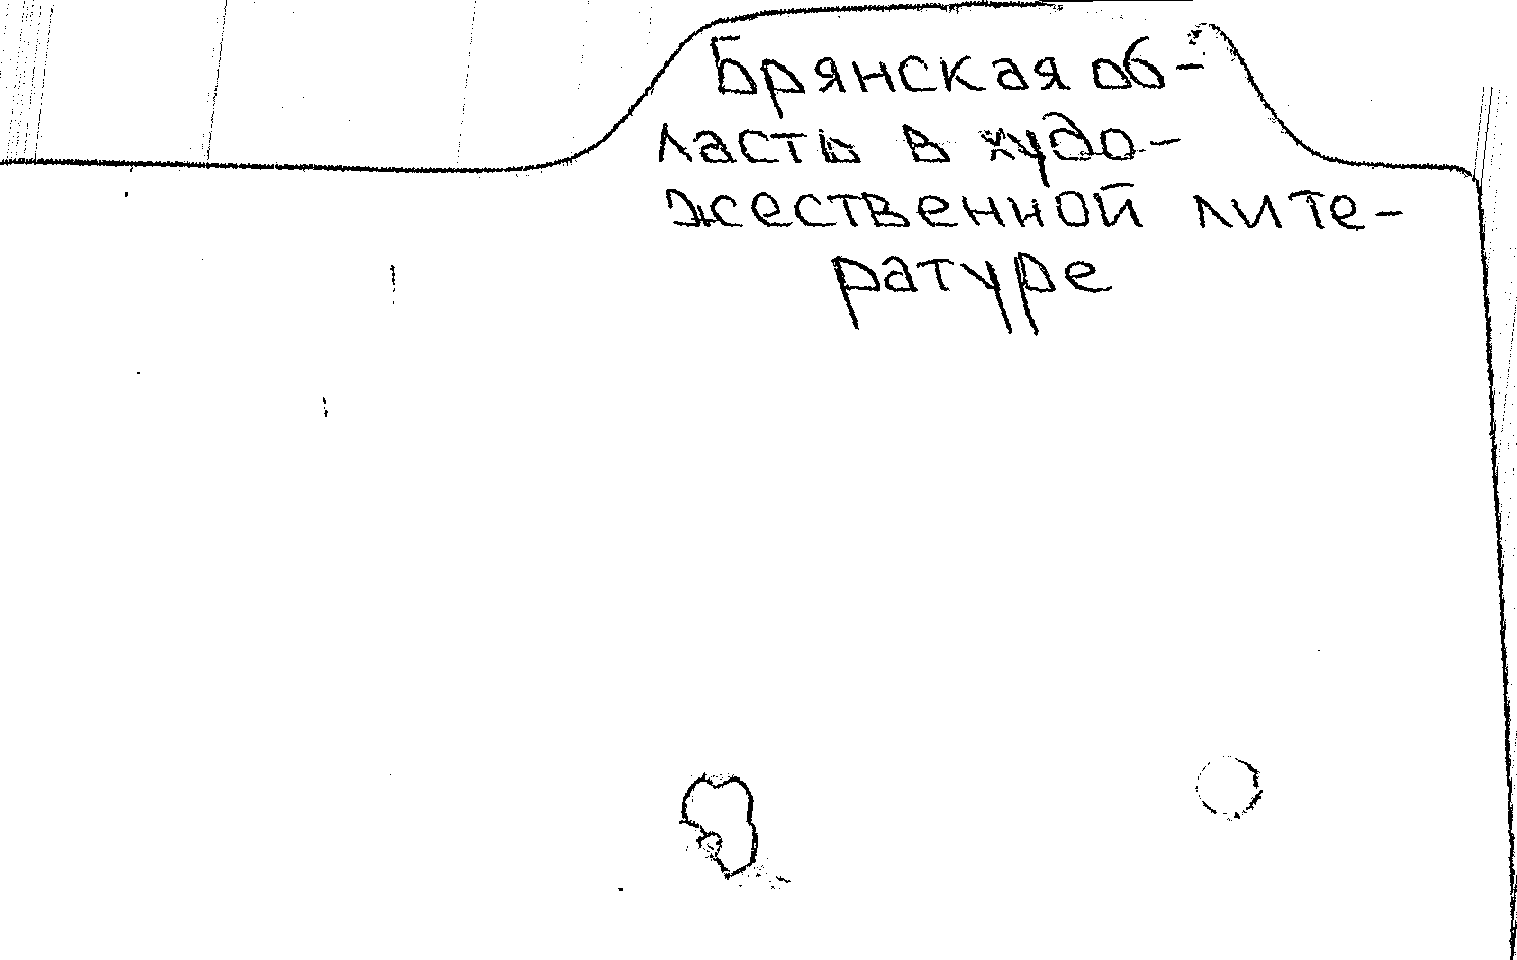 Брянская об-
ласть в худо-
жественной лите-
ратуре